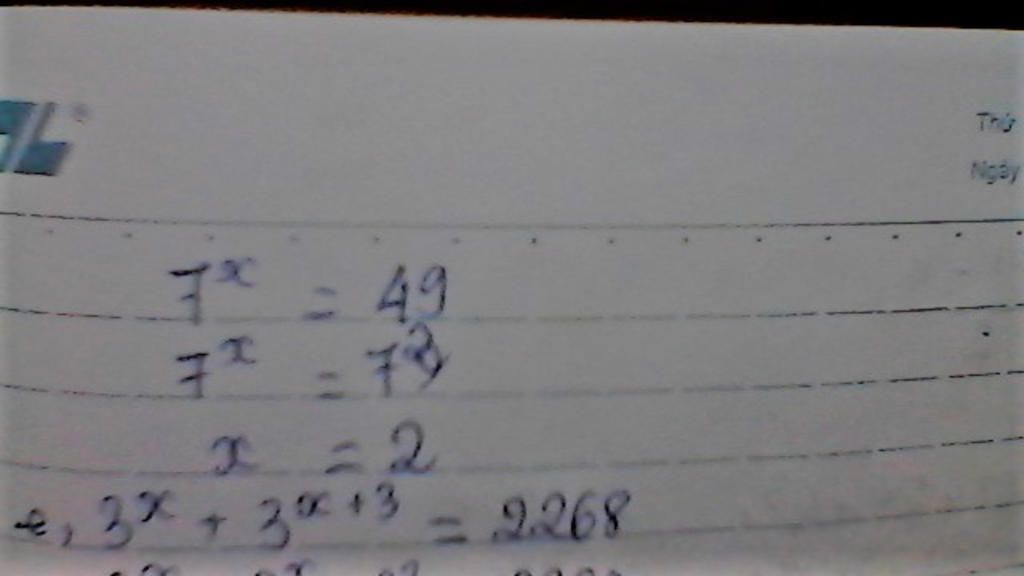 Thứ
Ngày
7^x = 49
7^x = 7^2
x = 2
e, 3^x + 3^{x+3} = 2268